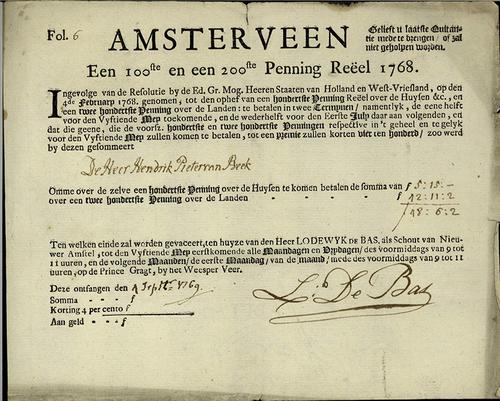 Fol. 6
AMSTERVEEN
Geliest u laatste Quitan-
tie mede te brengen / of zal
niet geholpen worden.
Een 100ste en een 200ste Penning Reëel 1768.
Ingevolge van de Resolutie by de Ed. Gr. Mog. Heeren Staaten van Holland en West-Vriesland, op den
4de February 1768. genomen, tot den ophef van hondertste Penning Reëel over de Huysen &c., en
een twee hondertste Penning over de Landen: te betalen in twee Termynen / namentlyk, de eene helft
voor den Vyftiende Mey toekomende, en de wederhelft voor den Eerste July daar aan volgenden, en
dat die geene, die de voorsz. hondertste en twee hondertste Penningen respective in 't geheel en te gelyk
voor den Vyftiende Mey zullen komen te betalen, tot een premie zullen korten vier ten honderd / zoo werd
by dezen gesommeert
De Heer Hendrik Pieter van Beek
Omme over de zelve een hondertste Penning over de Huysen te komen betalen de somma van f 5:15:-
over een twee hondertste Penning over de Landen - - - - f 12:11:2
f 18:6:2
Ten welken einde zal worden gevaceert, ten huyze van den Heer LODEWYK DE BAS, als Schout van Nieu-
wer Amstel, tot den Vyftiende Mey eerstkomende alle Maandagen en Vrydagen / des voormiddags van 9 tot
11 uuren, en de volgende Maanden / de eerste Maandag / van de maand / mede des voormiddags van 9 tot 11
uuren, op de Prince Gragt, by het Weesper Veer.
Deze ontfangen den Septr. 1769.
Somma - - - f
Korting 4 per cento f
Aan geld - - f
L. De Bas